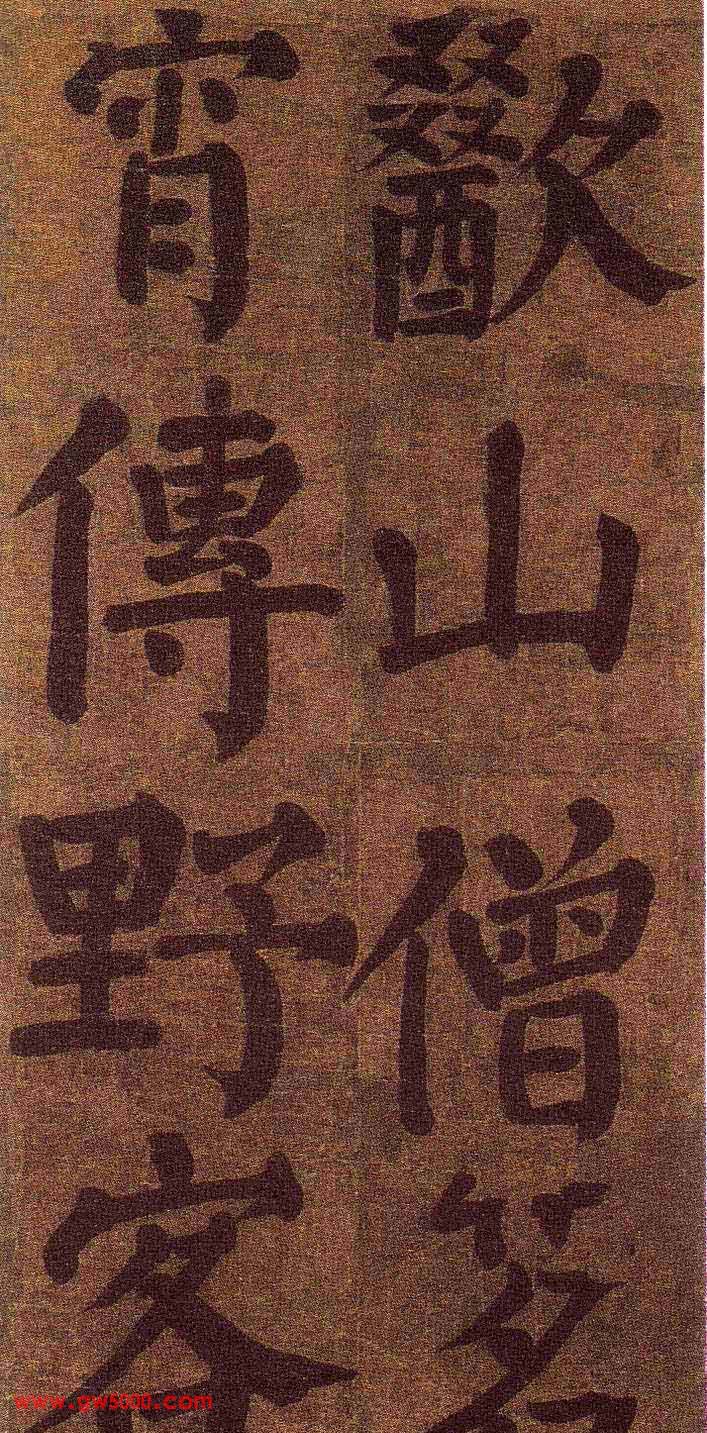 歠山僧茗
宵傳野客
www.gw5000.com